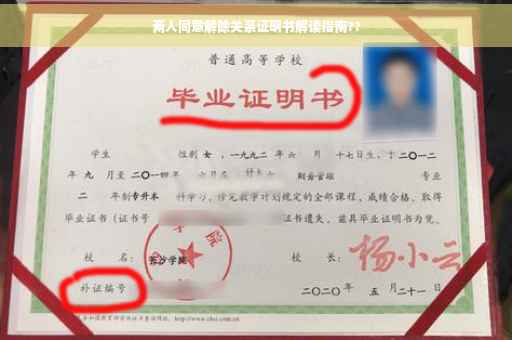 两人同意解除关系证明书解读指南??
普通高等学校
毕业证明书
学生 性别 女，一九九二年 六 月 十七日生，于二〇一二
年 九 月至 二〇一四年 六月在 财务管理 专业
二 年制 专升本 科学习，修完教学计划规定的全部课程，成绩合格，取得
毕业证书（证书号 证书遗失，兹具毕业证明书为凭。
校 名： 长沙学院 校 长： 杨小云
补证编号 二〇二〇年 五 月 二十一日